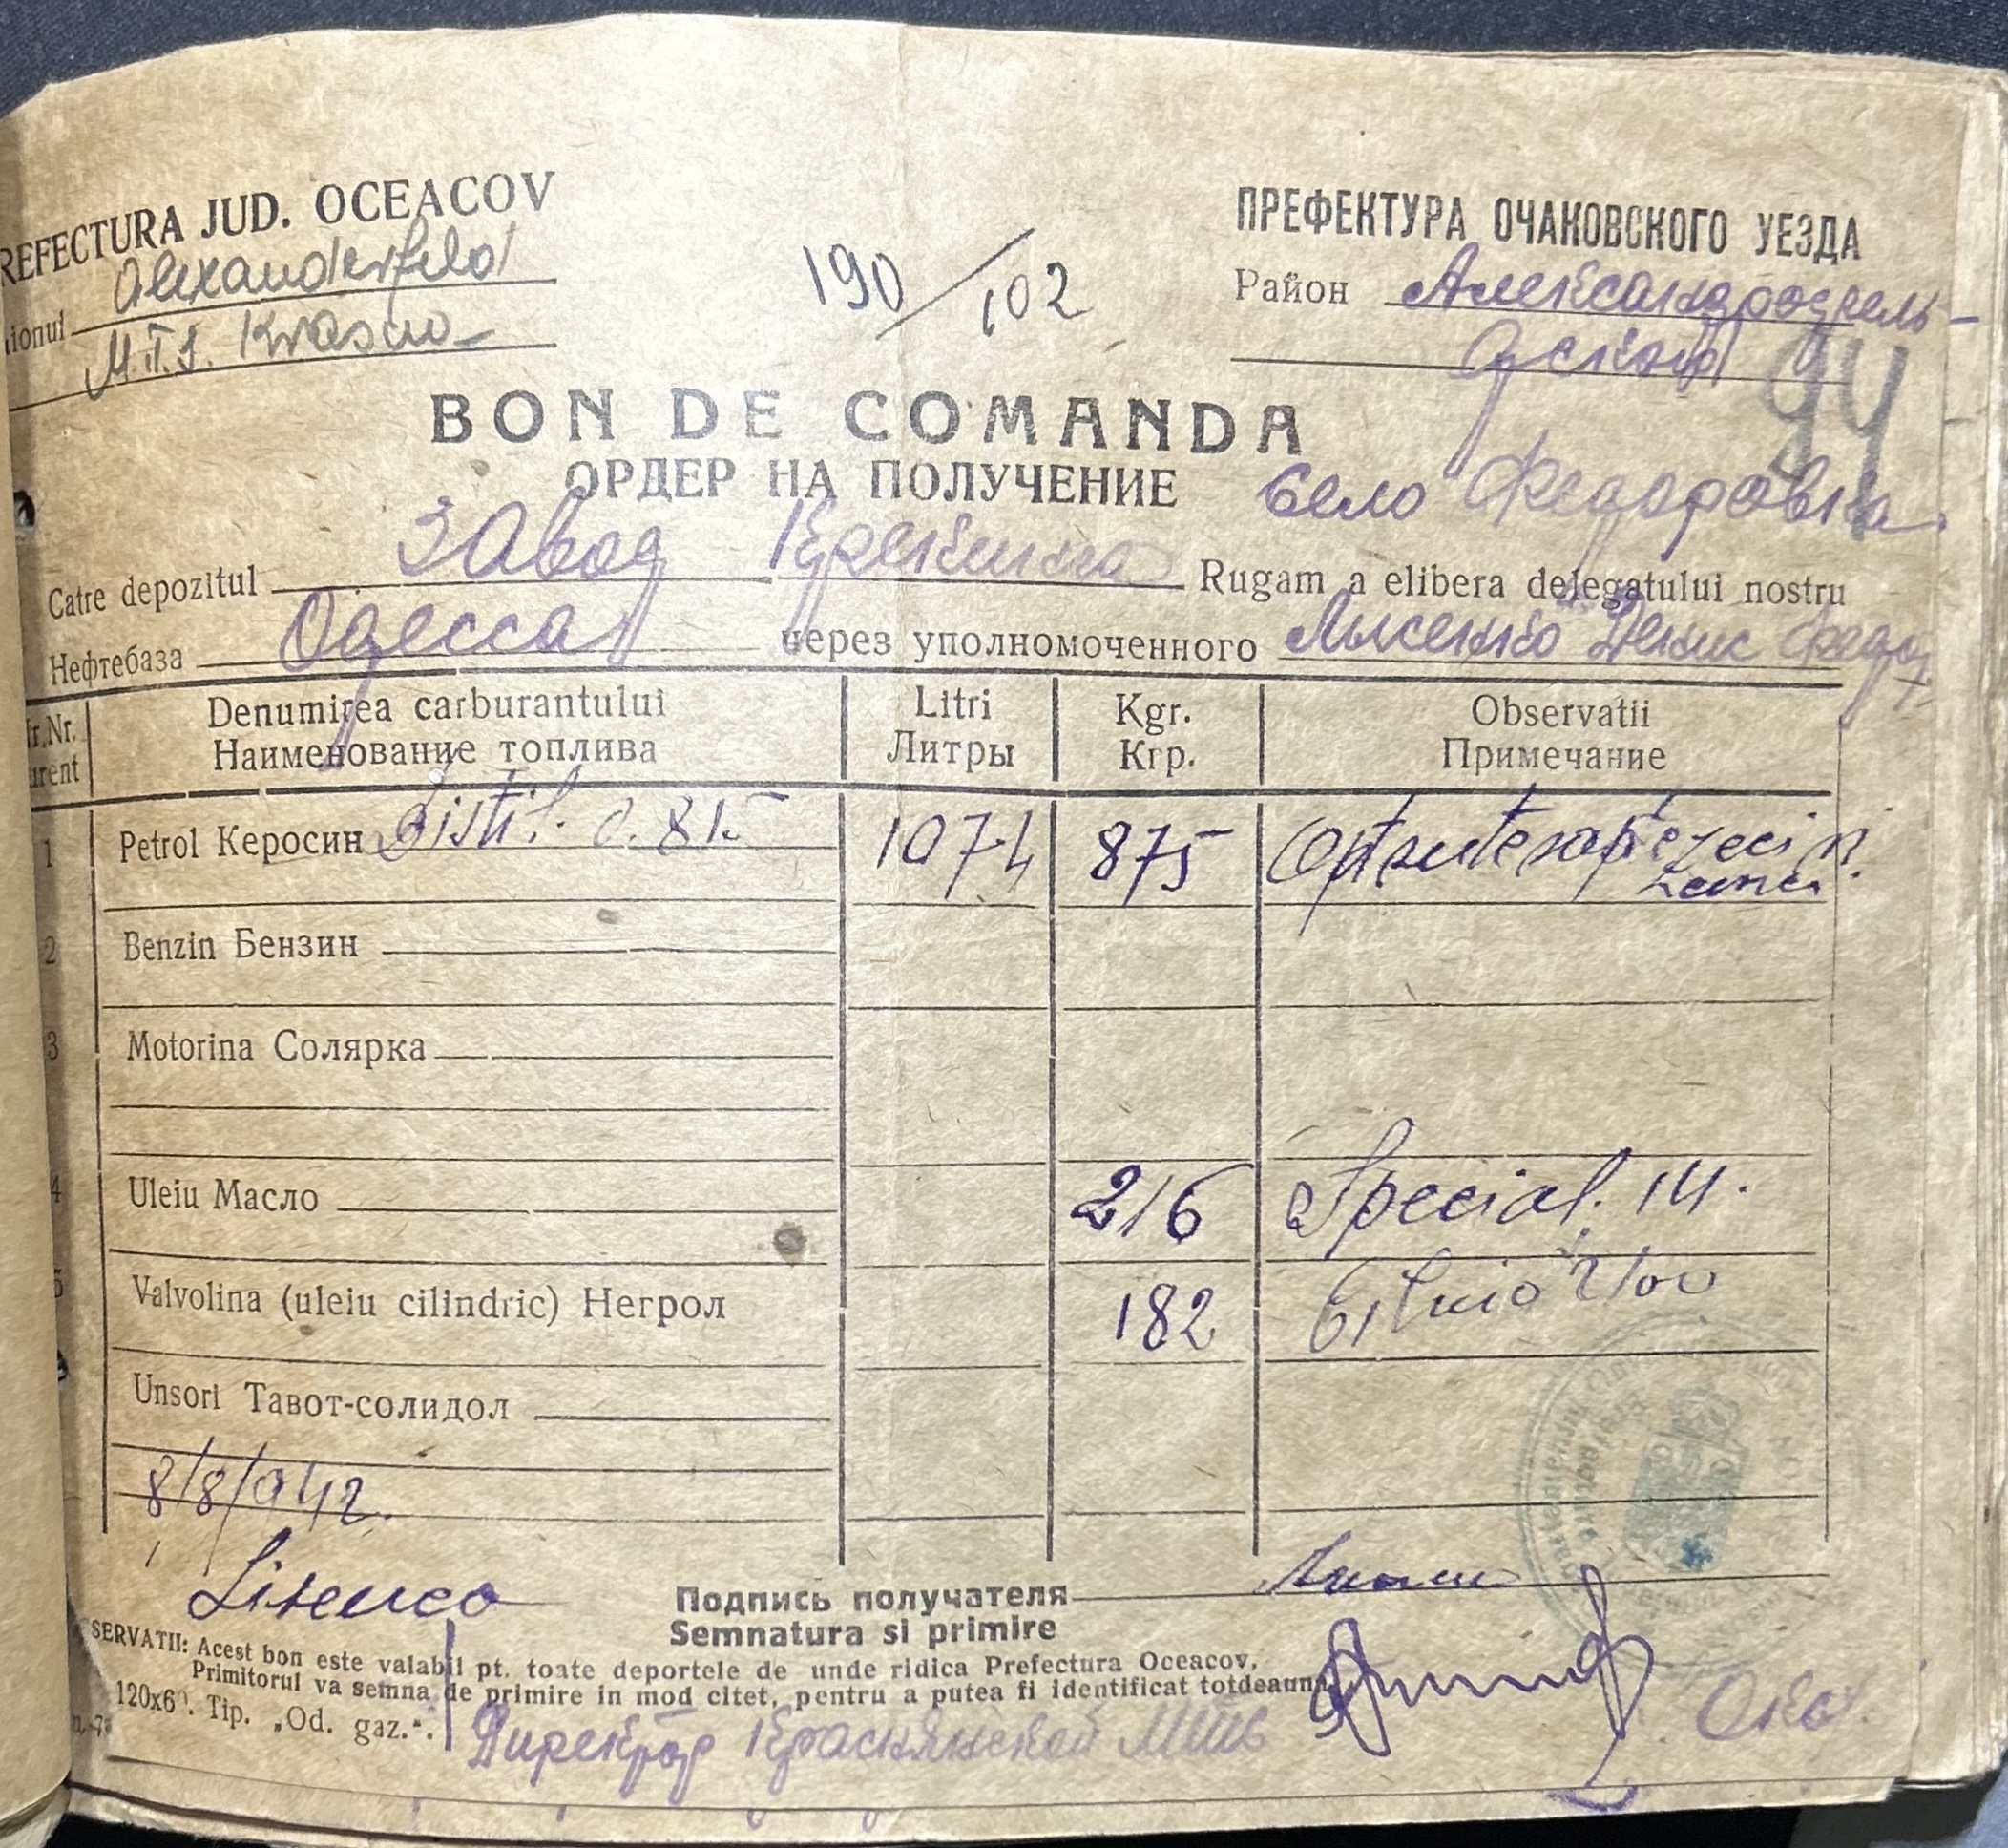 REFECTURA JUD. OCEACOV
ionul Alexanderfeld
M.T.S. Krasno
190/102
ПРЕФЕКТУРА ОЧАКОВСКОГО УЕЗДА
Район Александродель-
94
BON DE COMANDA
ОРДЕР НА ПОЛУЧЕНИЕ
Село Федоровка.
Catre depozitul Завод Крекинга Rugam a elibera delegatului nostru
Нефтебаза Одесса через уполномоченного Лысенко Денис Федо
r.Nr. urent
Denumirea carburantului
Наименование топлива
Litri
Литры
Kgr.
Кгр.
Observatii
Примечание
1 Petrol Керосин Distil. d. 815 1074 875 Optsutesaptezeci
2 Benzin Бензин
3 Motorina Солярка
4 Uleiu Масло 216 Special. 14.
5 Valvolina (uleiu cilindric) Негрол 182
Unsori Тавот-солидол
8/8/942.
Lisenco
Подпись получателя
Semnatura si primire
SERVATII: Acest bon este valabil pt. toate deportele de unde ridica Prefectura Oceacov,
Primitorul va semna de primire in mod citet, pentru a putea fi identificat totdeauna
120x6 . Tip. „Od. gaz.“.
Директор Краснянской МТС